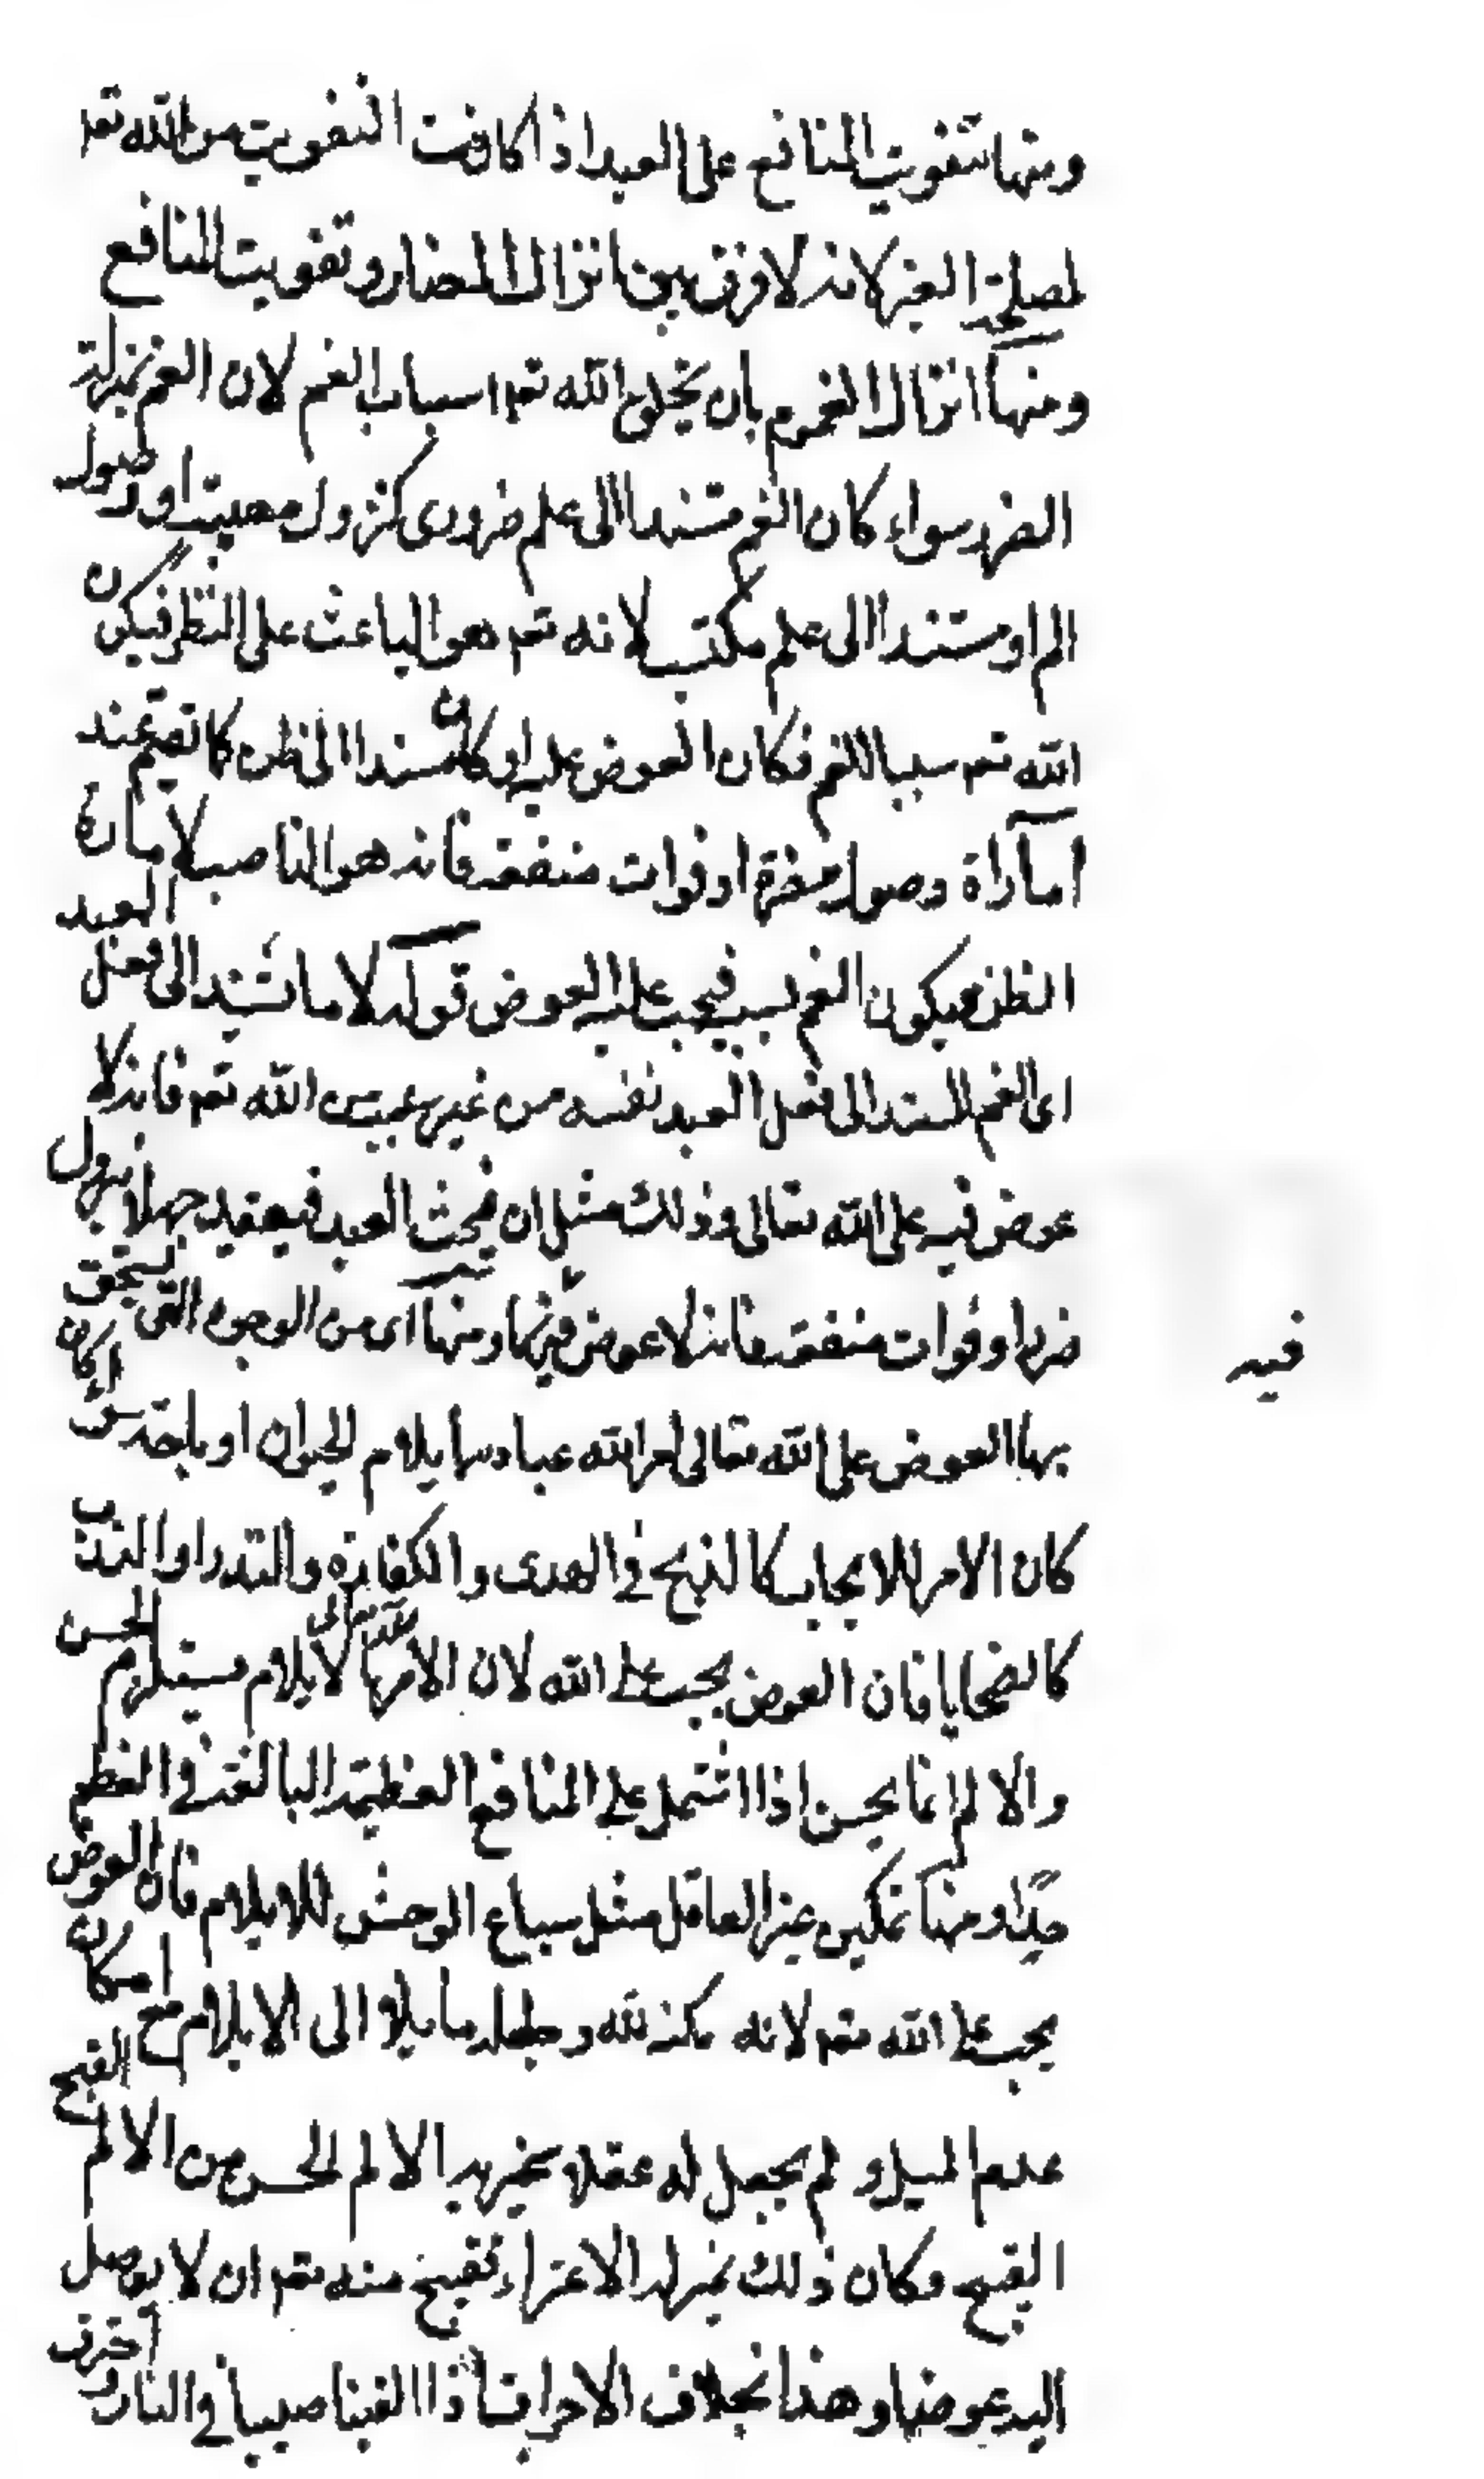 ومنها تفويت المنافع على العبد اذا كانت التفويت من الله تعا
لمصلحة الغير لانه لا فرق بين انزال المضار وتفويت المنافع
ومنها انزال الغموم بان يخلق الله تعه اسباب الغم لان الغم بمنزلة
الضرر سواء كان الغم مستندا الى علم ضروري كنزول مصيبة او وصول
الم او مستندا الى علم مكتسب لانه تعه هو الباعث على النظر فيكون
الله تعه سببا للغم فكان العوض عليه او كان مستندا الى ظن كان يغتم عند
امارة وصول مضرة او فوات منفعة فانه هو الناصب لامارة
الظن فيكون الغم بسببه فيجب عليه العوض قوله لا ما تستند الى فعل العبد
اى الغم المستند الى فعل العبد نفسه من غير سبب من الله تعه فانه لا
عوض فيه على الله تعالى وذلك مثل ان يبحث العبد فيعتقد جهلا نزول
ضرر او فوات منفعة فانه لا عوض فيهما ومنها اى من الوجوه التى يستحق
بها العوض على الله تعالى امر الله عباده بايلام الحيوان او باحته سواء كان
كان الامر للايجاب كالذبح في الهدى والكفارة والنذر او الندب
كالضحايا فان العوض يجب على الله لان الامر لله تعالى بالايلام يستلزم الحسن
والالم انما يحسن اذا اشتمل على المنافع العظيمة البالغة في العظم
جدا ومنها تمكين غير العاقل مثل سباع الوحش للايلام فان العوض
يجب على الله تعه لانه مكنه لله وجعله مايلا الى الايلام مع امكان
عدم الميل ولم يجعل له عقلا يميز به الالم الحسن من الالم القبيح
القبيح وكان ذلك بمنزلة الاغراء فقبيح منه تعه ان لا يوصل
اليه عوضا وهذا بخلاف الاحراق اذا القينا صبيا في النار احترق
فيه